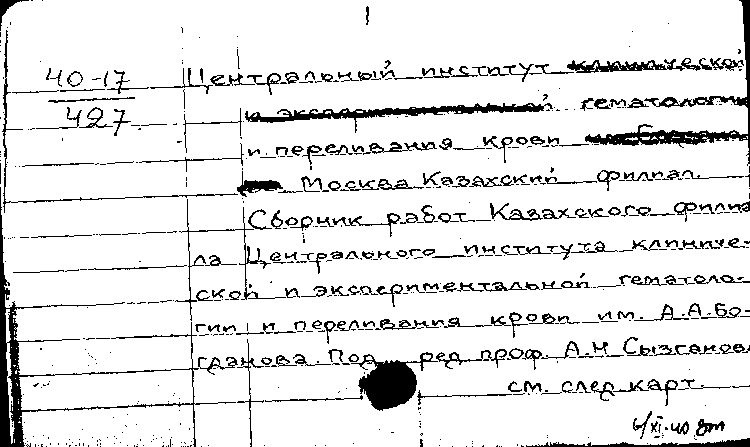 40-17
427
Центральный институт клинической
и экспериментальной гематологии
и переливания крови
Москва Казахский филиал.
Сборник работ Казахского филиа
ла Центрального института клиниче-
ской и экспериментальной гематоло-
гии и переливания крови им. А.А.Бо-
гданова. Под ред проф. А.Н Сызганов
см. след карт.